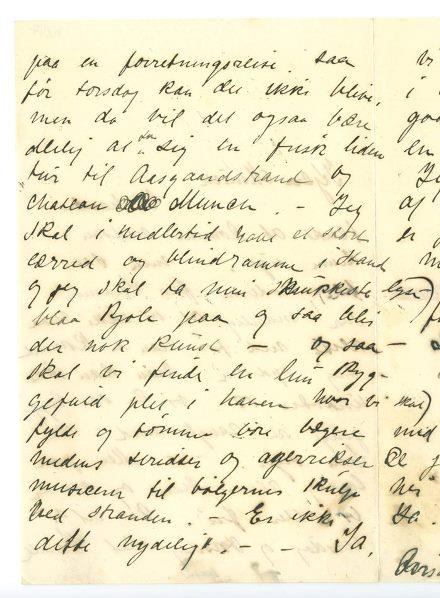 paa en forretningsreise saa
før torsdag kan det ikke blive,
men da vil det ogsaa være
deilig at ta sig en frisk liden
tur til Aasgaardstrand og
chateau Munch. – Jeg
skal i midlertid have et stort
lærred og blindramme i stand
og jeg skal ta min smukkeste lyse-
blaa Kjole paa og saa blir
det nok Kunst – og saa –
skal vi finde en lun Skyg-
gefuld plet i haven hvor vi
fylde og tømme vore bægere
medens siridser og agerrikser
musicerer til bølgernes skulp
ved stranden. – Er ikke
dette nydeligt. – – Ja,
vi
i
god
en
og
er
skal
med